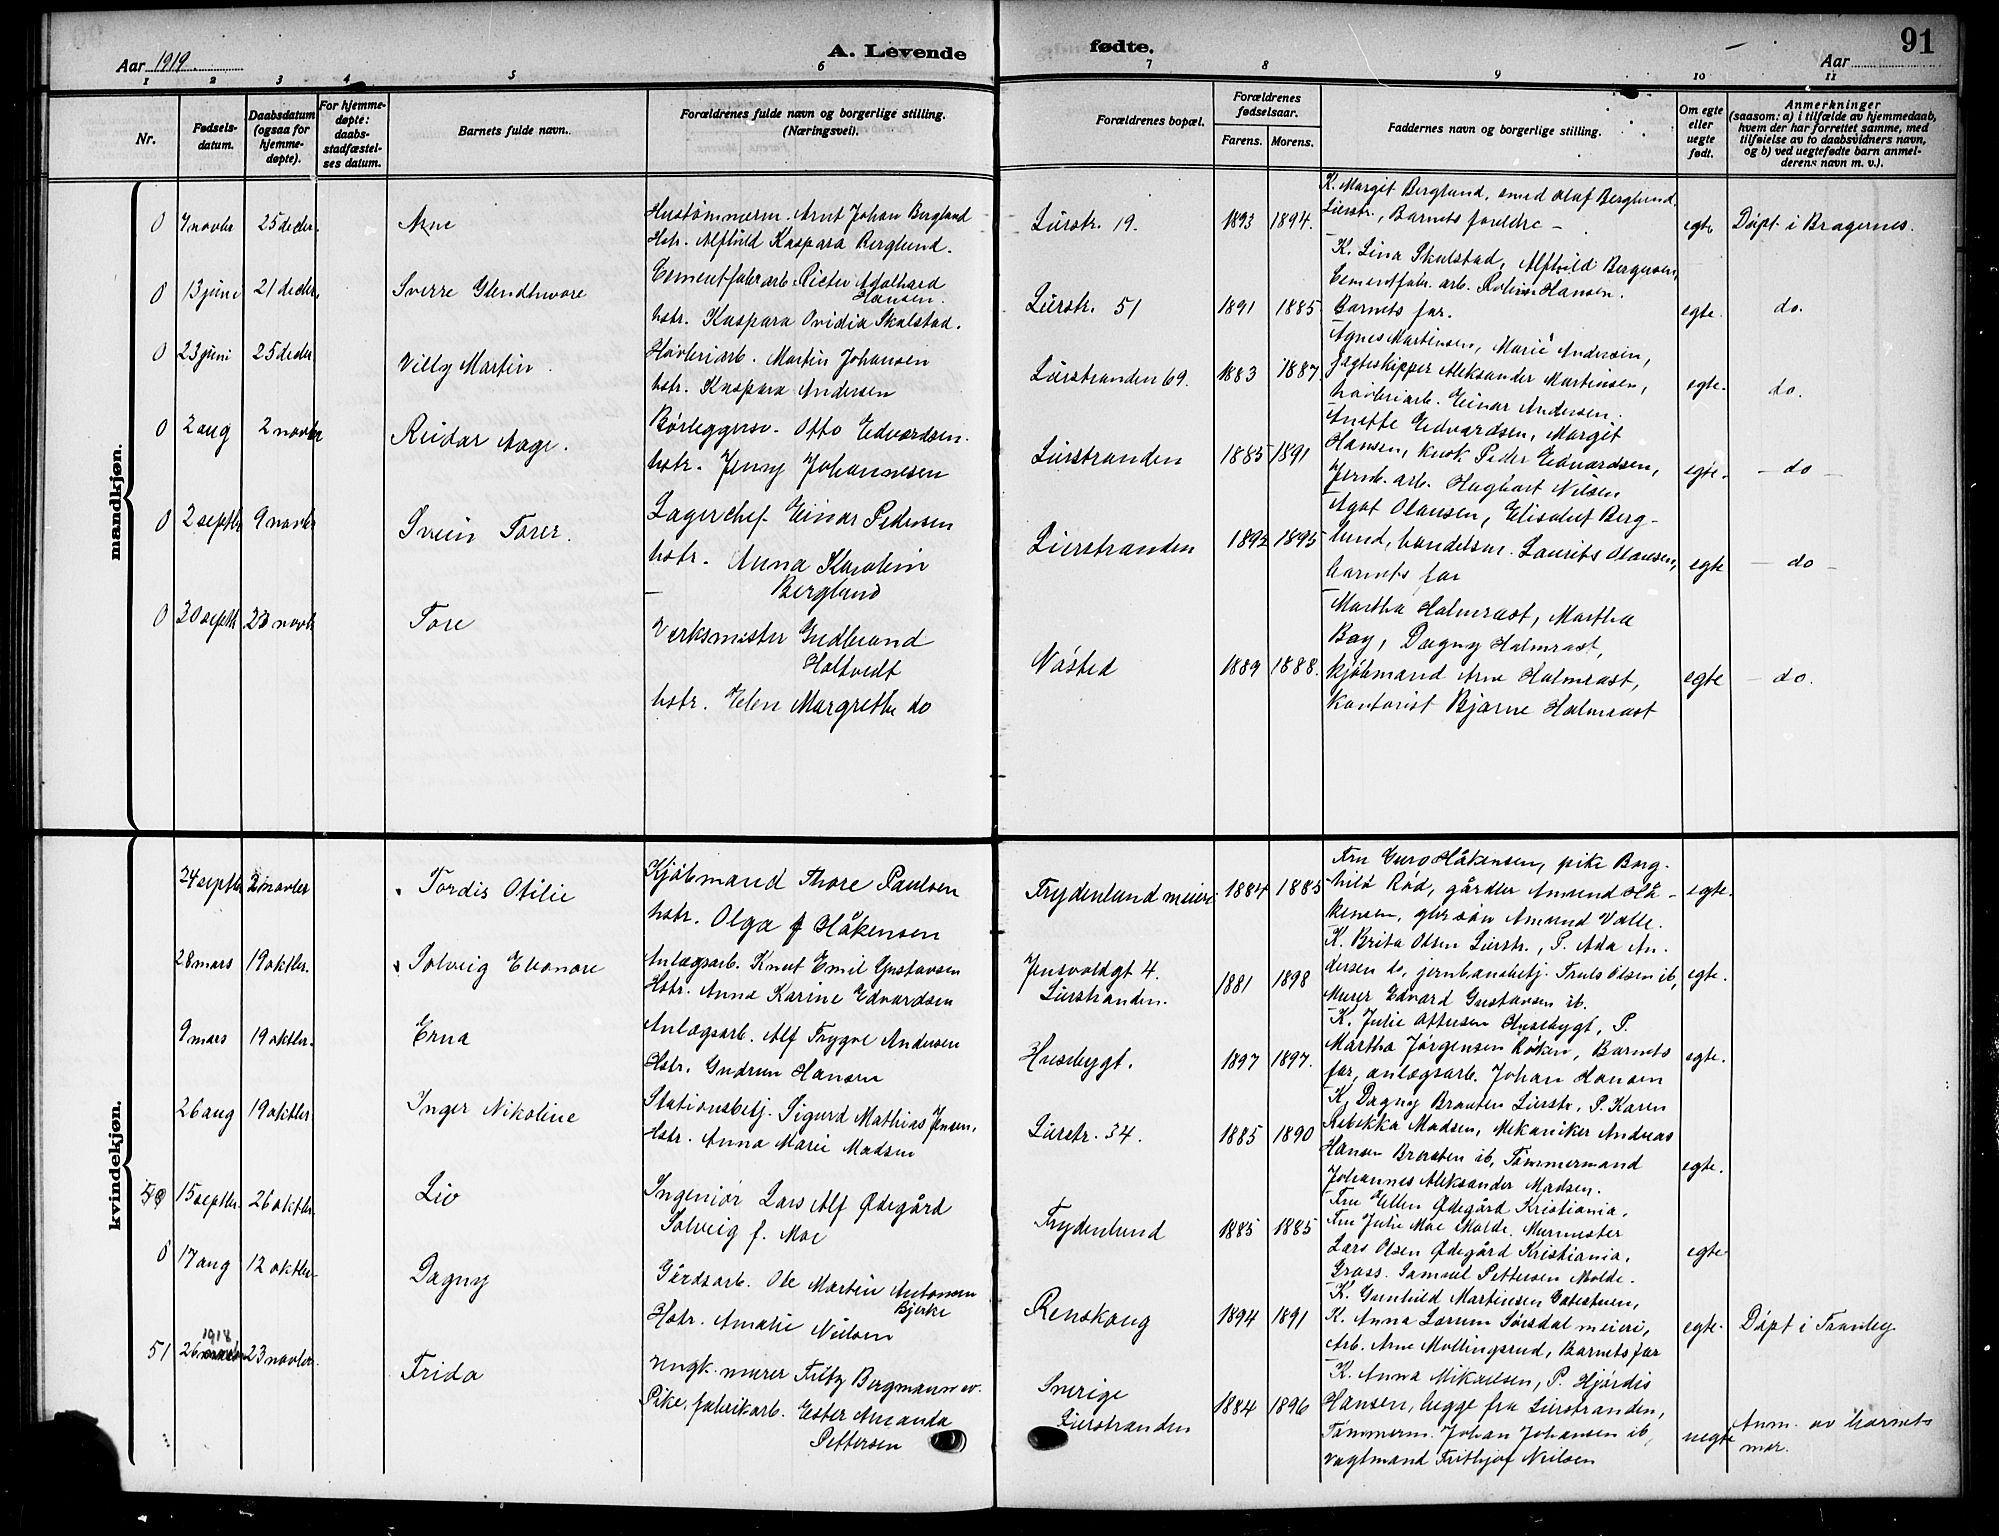 91
A. Levende fødte.
Aar 1919
Aar
1 2 3 4 5 6 7 8 9 10 11
Nr.
Fødsels-
datum.
Daabsdatum
(ogsaa for
hjemme-
døpte).
For hjemme-
døpte:
daabs-
stadfæstel-
ses datum.
Barnets fulde navn.
Forældrenes fulde navn og borgerlige stilling.
(Næringsvei).
Forældrenes bopæl.
Forældrenes
fødselsaar.
Farens. Morens.
Faddernes navn og borgerlige stilling.
Om egte
eller
uegte
født.
Anmerkninger
(saasom: a) i tilfælde av hjemmedaab,
hvem der har forrettet samme, med
tilføielse av to daabsvidners navn,
og b) ved uegtefødte barn anmel-
derens navn m. v.).
mandkjøn.
0 7 novbr 25 decbr. Arne
Hustømmerm. Arnt Johan Berglund
Hstr. Alfhild Kaspara Berglund.
Lierstr. 19. 1893 1894.
K. Margit Berglund, smed Olaf Berglund
Lierstr., Barnets foreldre –
egte Døpt i Bragernes.
0 13 juni 21 decbr. Sverre Glendhwore
Cementfabrarb. Peter Adolhsed
Hansen.
hstr. Kaspara Ovidia Skalstad.
Lierstr. 51 1891 1885
K. Lina Skalstad, Alfhild Bergersen,
Cementfabr. arb. Robinson Hansen.
Barnets far.
egte. do.
0 23 juni 25 decbr Villy Martin
Høvleriarb. Martin Johansen
hstr. Kaspara Andersen
Lierstranden 69. 1883 1887
Agnes Martinsen, Marie Andersen,
Jagteskipper Aleksander Martinsen,
høvleriarb. Einar Andersen.
egte. do.
0 2 aug 2 novbr Reidar Aage.
Rørleggersv. Otto Edvardsen.
hstr. Jenny Johannesen
Lierstranden 1885 1891
Anette Edvardsen, Margit
Hansen, kusk Peder Edvardsen,
Jernb. arb. Hagbart Nilsen
egte. – do –
0 2 septbr 9 novbr Svein Torer.
Lagerchef. Einar Pedersen
hstr. Anna Karolin
Berglund
Lierstranden 1892 1895
Agot Olausen, Elisabet Berg-
lund, handelsm. Laurits Olausen,
barnets far
egte – do –
0 30 septbr 23 novbr Tore
Verksmester Gudbrand
Holtvedt
hstr. Helen Margrethe do
Nøsted 1889 1888.
Martha Halmrast, Martha
Bay, Dagny Halmrast,
kjøbmand Arne Halmrast,
Kontorist Bjarne Halmrast
egte – do.
kvindekjøn.
24 septbr 2 novbr Tordis Otilie
Kjøbmand Thore Paulsen
hstr. Olga f Håkensen
Frydenlund meieri 1884 1885
Fru Guro Håkensen, pike Borg-
hild Rød, gårdbr Amund Hå-
kensen, gbrsøn Amund Valle.
egte.
28 mars 19 oktbr. Solveig Eleonore
Anlægsarb. Knut Emil Gustavsen
Hstr. Anna Karine Edvardsen
Jensvoldgt 4.
Lierstranden. 1881 1898
K. Brita Olsen Lierstr., P. Ada An-
dersen do, jernbanebetj. Truls Olsen ib,
Murer Edvard Gustavsen ib.
egte.
9 mars 19 oktbr. Erna
Anlægsarb. Alf Trygve Andersen
Hstr. Gudrun Hansen
Husebygt. 1897 1897.
K. Julie Ottersen Husebygt, P.
Martha Jørgensen Røken, Barnets
far, anlægsarb. Johan Hansen
egte.
26 aug 19 oktbr. Inger Nikoline
Stationsbetj. Sigurd Mathias Jensen,
Hstr. Anna Marie Madsen
Lierstr. 34. 1885 1890
K. Dagny Braaten Lierstr, P. Karen
Rebekka Madsen, Mekaniker Andreas
Hansen Braaten ib, Tømmermand
Johannes Aleksander Madsen.
egte.
15 septbr. 26 oktbr. Liv
Ingeniør Lars Alf Ødegård
Solveig f. Moe
Frydenlund 1885 1885
Fru Ellen Ødegård Kristiania.
Fru Julie Moe Molde. Murmester
Lars Olsen Ødegård Kristiania,
Gross. Samuel Pettersen Molde.
egte
0 17 aug 12 oktbr. Dagny
Gårdsarb. Ole Martin Antonsen
Bjerke
Hstr. Amalie Nielsen
Renskaug 1894 1891
K. Gunhild Martinsen Gatestuen,
K. Anna Lorum Sørsdal meieri,
Arb. Arne Mollingsrud, Barnets far
egte. Døpt i Tranby
51 1918
26 23 novbr. Frida
ungk. murer Fritz Bergmann ev.
Pike, fabrikarb. Ester Amanda
Pettersen
Sverige
Lierstranden 1884 1896
K. Anna Mikaelsen, P. Hjørdis
Hansen, begge fra Lierstranden,
Tømmerm. Johan Johansen ib,
vagtmand Frithjof Nielsen
uegte Anm. av barnets
mor.